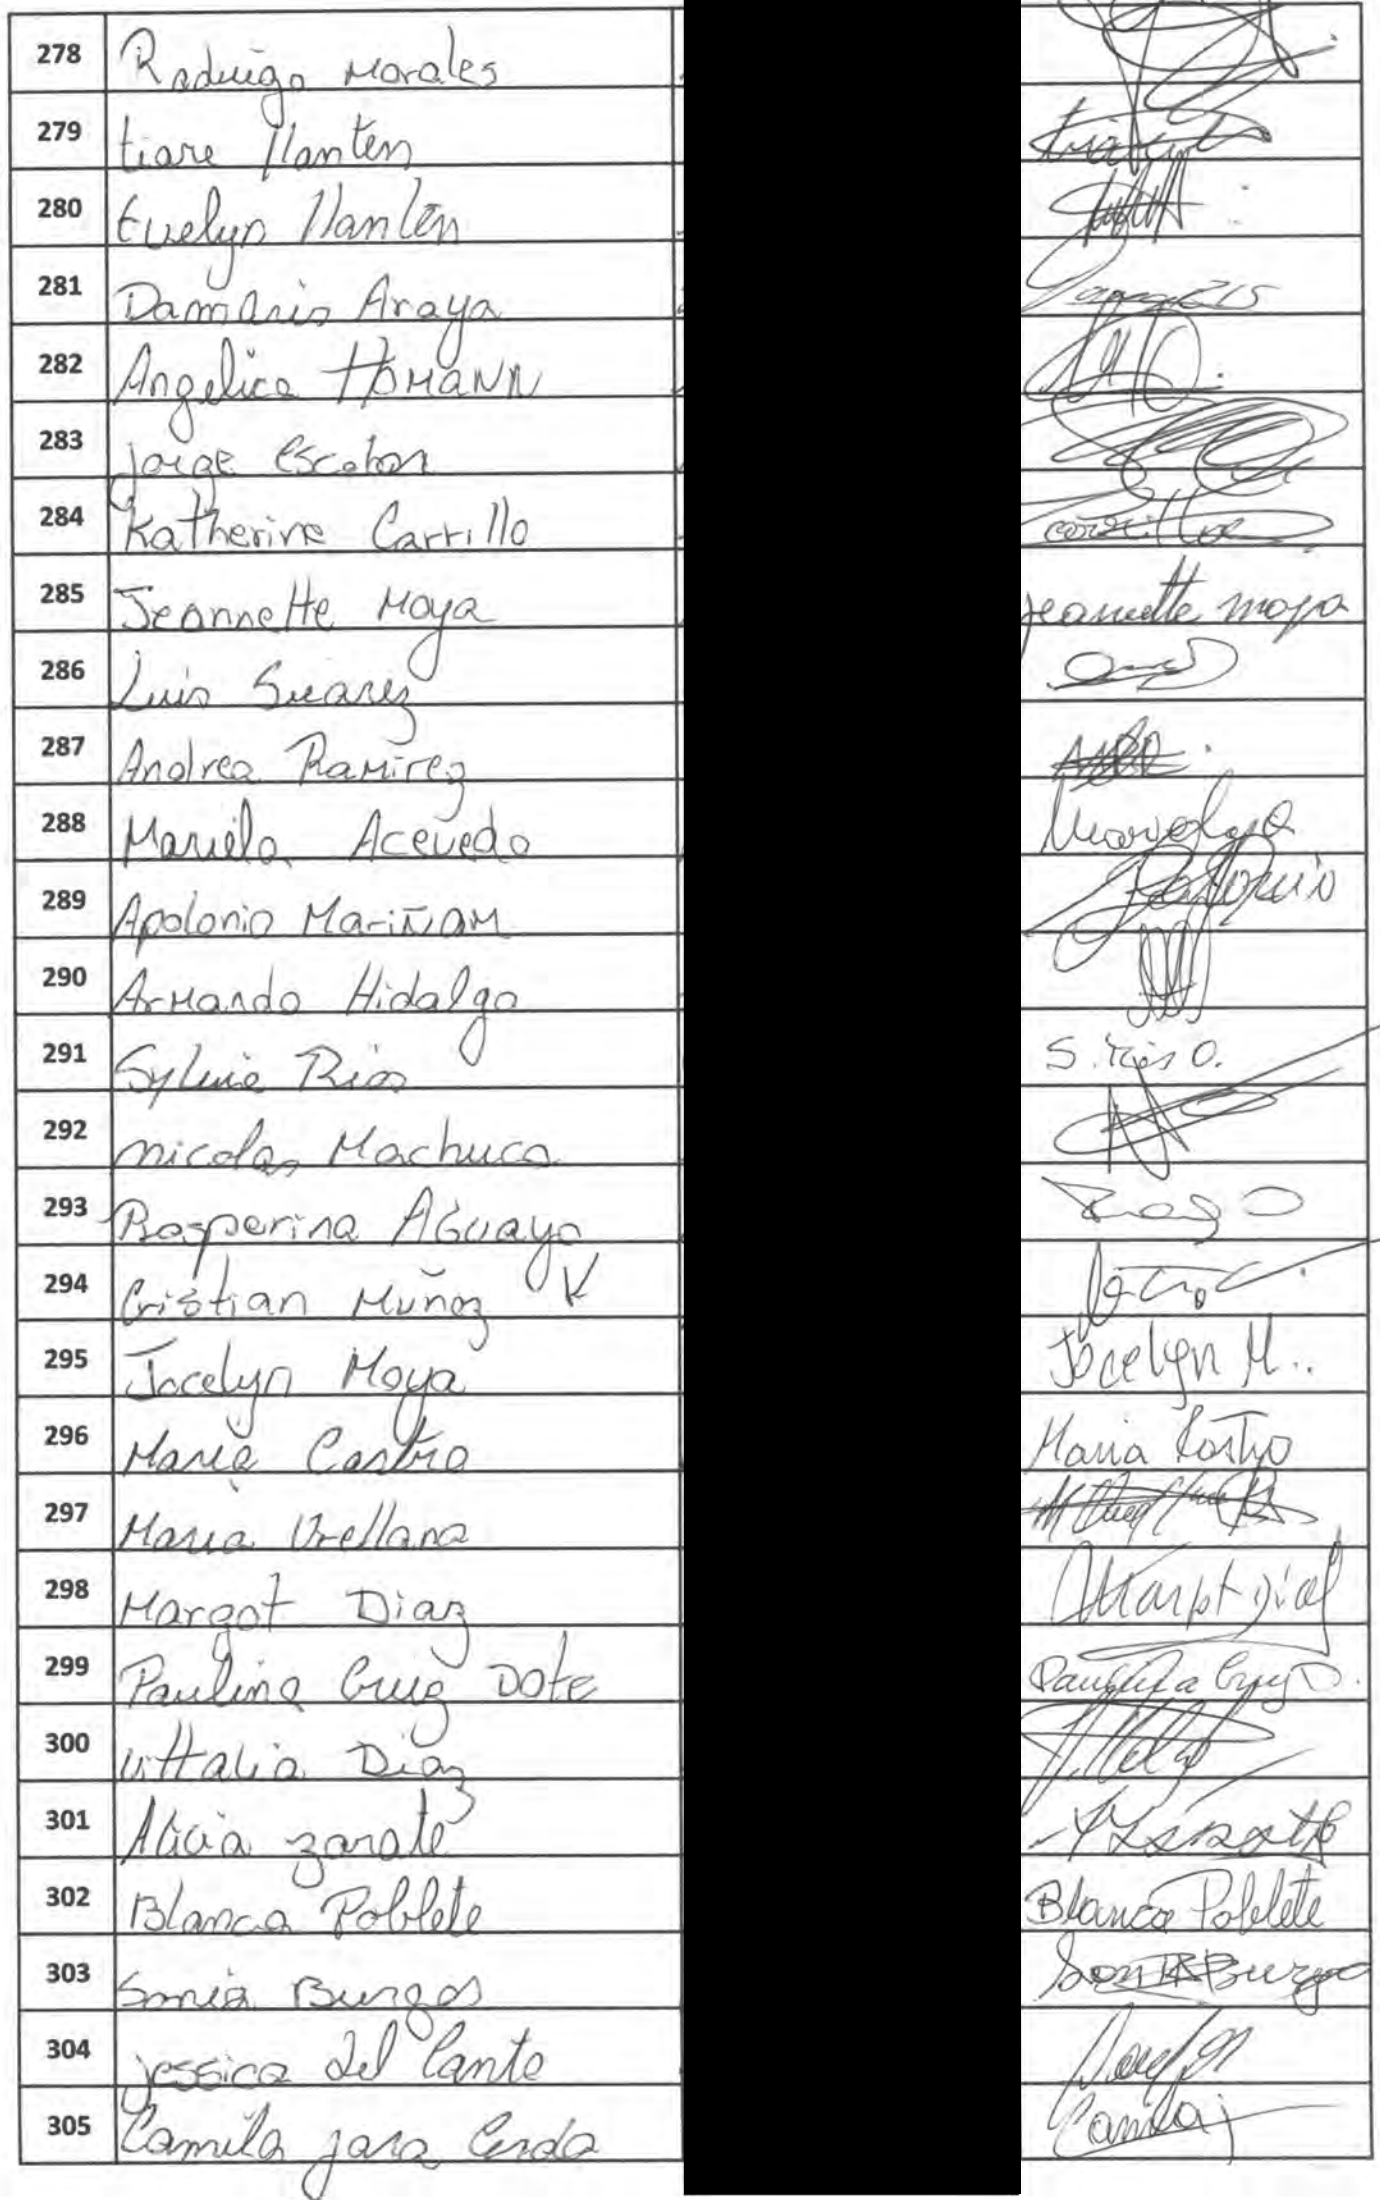 278 Rodrigo Morales
279 tiare Llanten
280 Evelyn Llantén
281 Damaris Araya
282 Angelica HOMANN
283 Jorge Escobar
284 Katherine Carrillo
285 Jeannette Moya Jeannette moya
286 Luis Suarez
287 Andrea Ramirez
288 Mariela Acevedo
289 Apolonio Mariñam
290 Armando Hidalgo
291 Sylvia Rios S. Rios O.
292 nicolas Machuca
293 Rosperina AGuayo
294 Cristian Muñoz V
295 Jocelyn Moya Jocelyn M..
296 Maria Castro Maria Castro
297 Maria Orellana
298 Margot Diaz Margot Diaz
299 Paulina Cruz Dote Paulina Cruz D.
300 vittalia Diaz
301 Alicia zarate AZarate
302 Blanca Poblete Blanca Poblete
303 Sonia Burgos Sonia Burgos
304 jessica del Canto
305 Camila jara Cerda Camila j